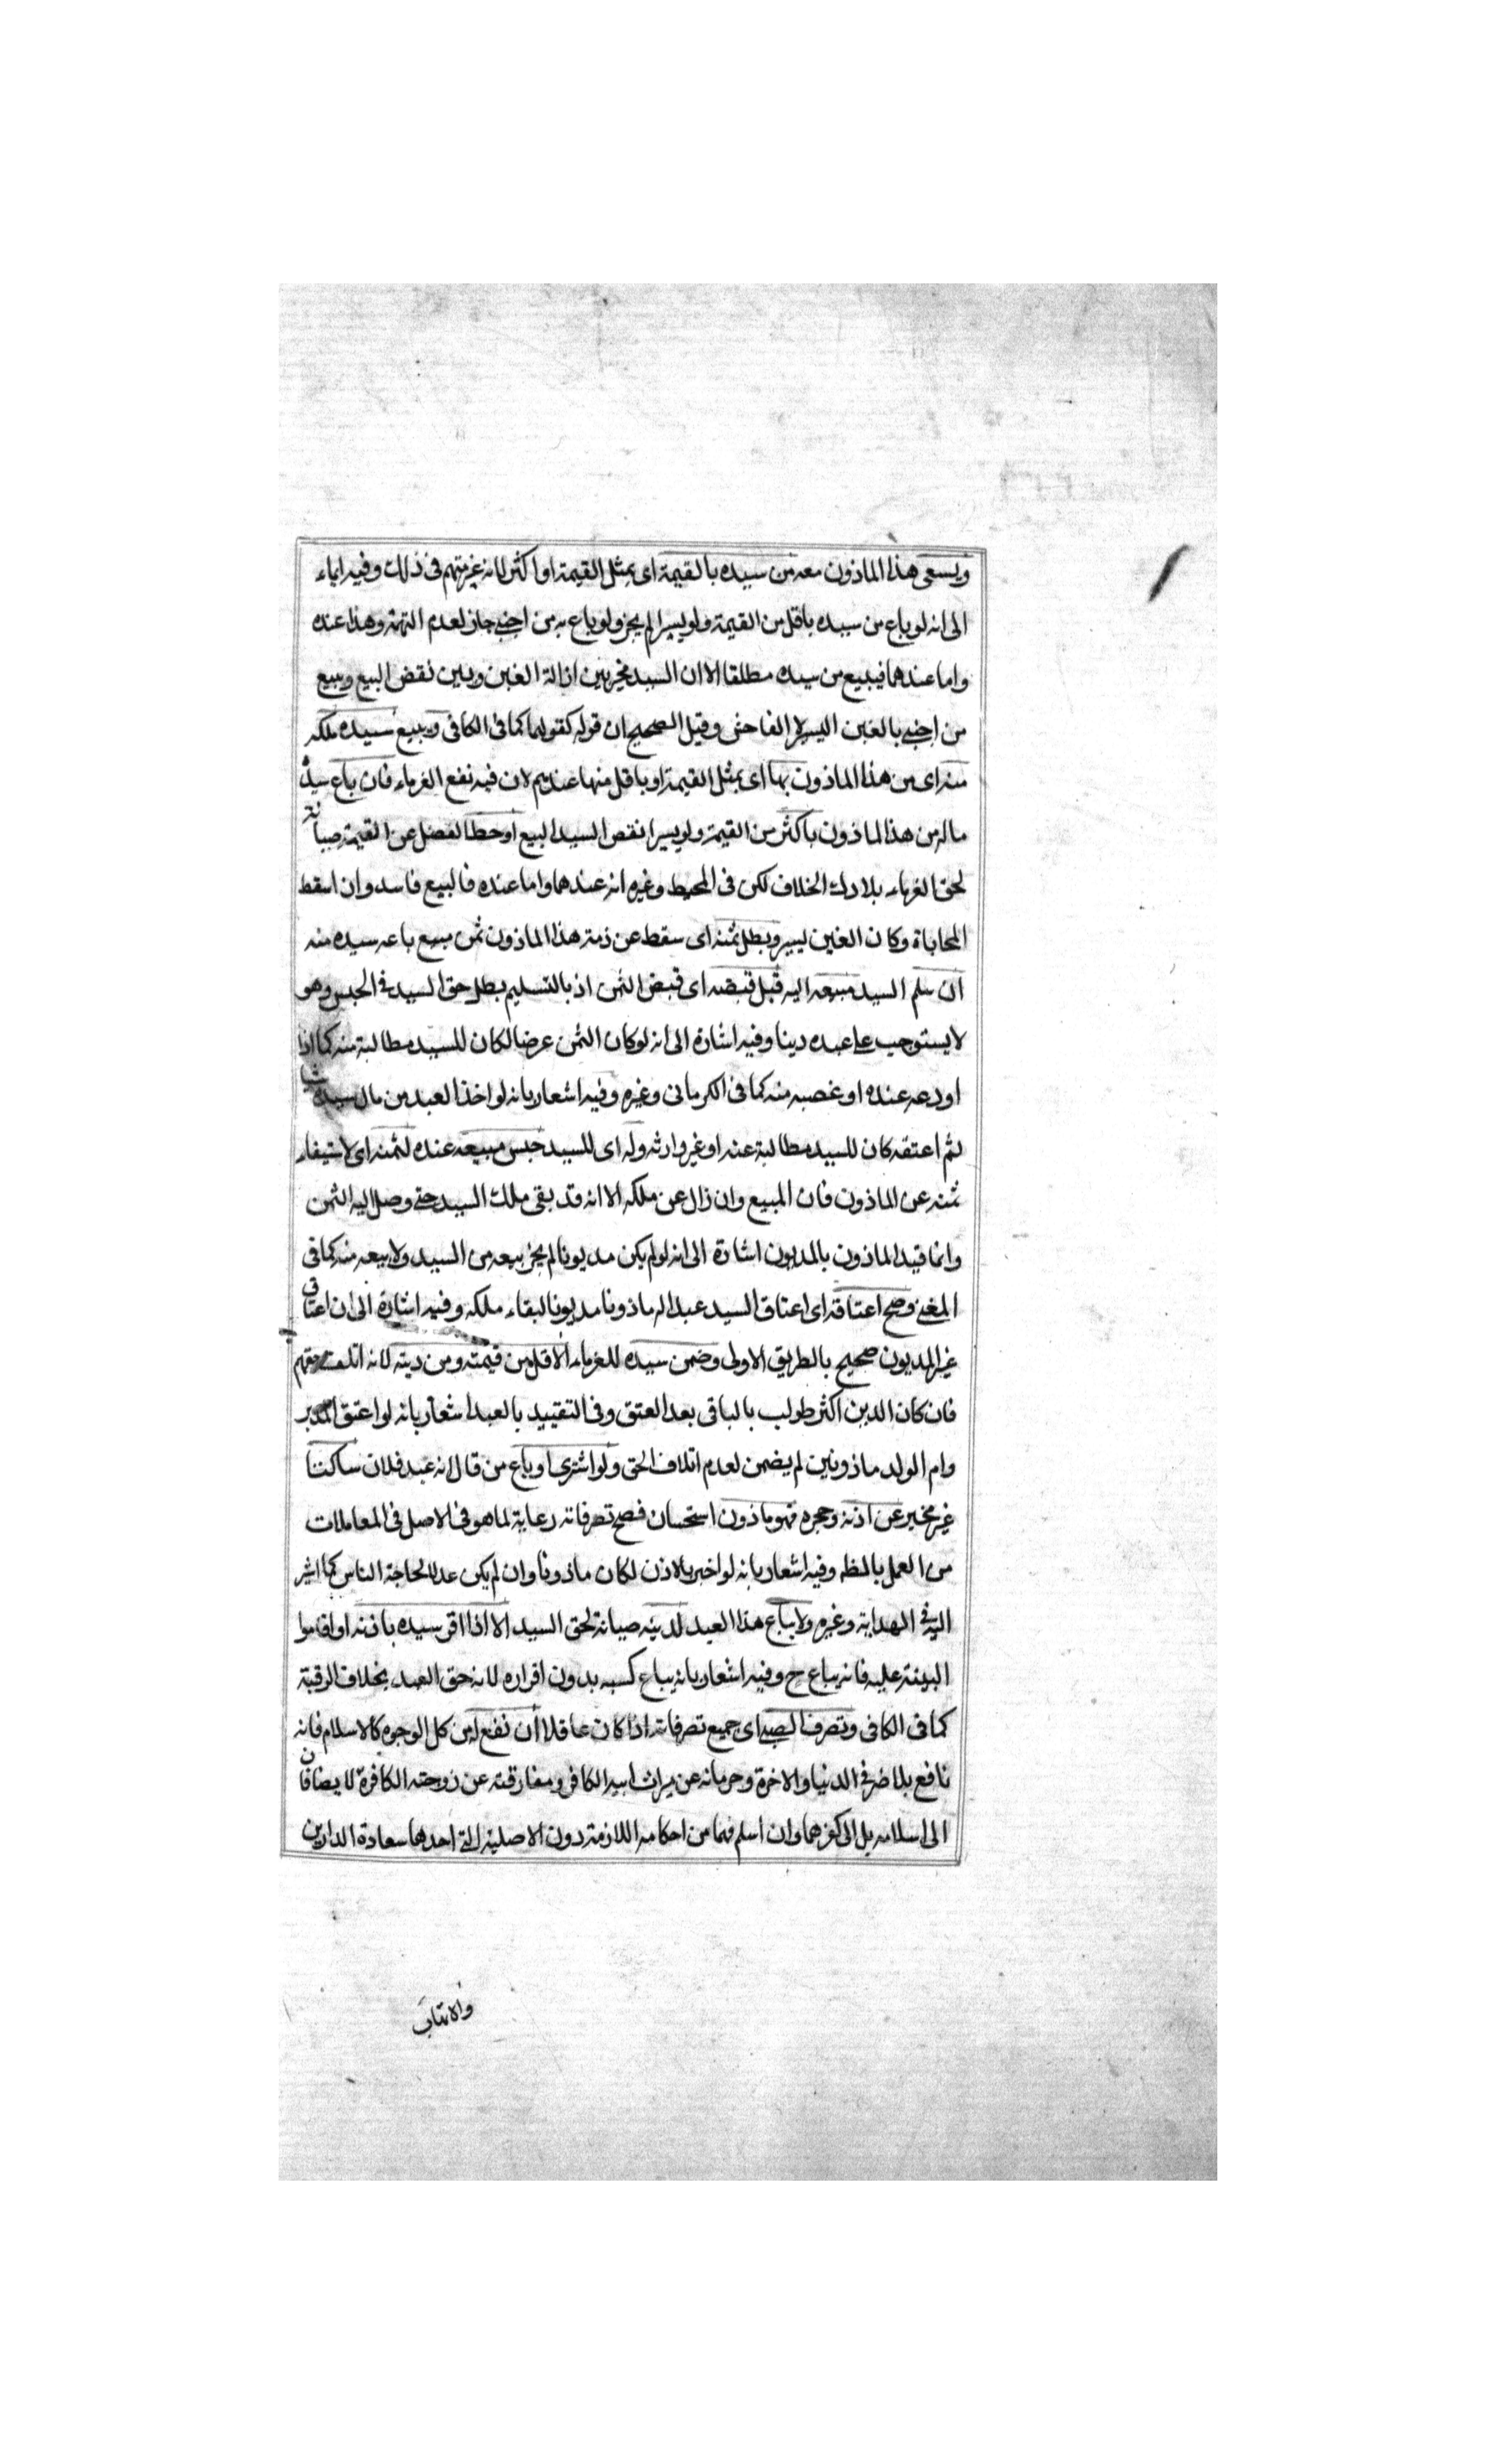 ويسعى هذا الماذون معه من سيده بالقيمة اى بمثل القيمة او اكثر لانه غير متهم فى ذلك وفيه ايماء
الى انه لو باع من سيده باقل من القيمة ولو يسيرا لم يجز ولو باع به من اجنبى جاز لعدم التهمة وهذا عنده
واما عندهما فيبيع من سيده مطلقا الا ان السيد مخير بين ازالة الغبن وبين نقض البيع ويبيع
من اجنبى بالغبن اليسير لا الفاحش وقيل الصحيح ان قوله كقولهما كما فى الكافى ويبيع سيده ملكه
منه اى من هذا الماذون بها اى بمثل القيمة او باقل منها عندهم لان فيه نفع الغرماء فان باع سيده
ماله من هذا الماذون باكثر من القيمة ولو يسيرا نقص السيد البيع او حط الفضل عن القيمة صيانة
لحق الغرماء بلا ذلك الخلاف لكن فى المحيط وغيره انه عندهما واما عنده فالبيع فاسد وان اسقط
المحاباة وكان الغبن يسير وبطل ثمنه اى سقط عن ذمة هذا الماذون ثمن مبيع باعه سيده منه
ان سلم السيد مبيعه اليه قبل قبضه اى قبض الثمن اذ بالتسليم بطل حق السيد فى الحبس وهو
لا يستوجب على عبده دينا وفيه اشارة الى انه لو كان الثمن عرضا لكان للسيد مطالبة منه كما اذا
اودعه عنده او غصبه منه كما فى الكرمانى وغيره وفيه اشعار بانه لو اخذ العبد من مال سيده شيا
ثم اعتقه كان للسيد مطالبة عنه او غير وارثه وله اى للسيد حبس مبيعه عنده لثمنه اى لاستيفاء
ثمنه عن الماذون فان المبيع وان زال عن ملكه الا انه قد بقى ملك السيد حتى وصل اليه الثمن
وانما قيد الماذون بالمديون اشارة الى انه لو لم يكن مديونا لم يجز بيعه من السيد ولا بيعه منه كما فى
المغنى وصح اعتاقه اى اعتاق السيد عبدا له ماذونا مديونا لبقاء ملكه وفيه اشارة الى ان اعتاق
غير المديون صحيح بالطريق الاولى وضمن سيده للغرماء الاقل من قيمته ومن دينه لانه اتلف حقهم
فان كان الدين اكثر طولب بالباقى بعد العتق وفى التقييد بالعبد اشعار بانه لو اعتق المدبر
وام الولد ماذونين لم يضمن لعدم اتلاف الحق ولو اشترى او باع من قال انه عبد فلان ساكتا
غير مخبر عن اذنه وحجره فهو ماذون استحسان فصح تصرفاته رعاية لما هو فى الاصل فى المعاملات
من العمل بالظه وفيه اشعار بانه لو اخبر بالاذن لكان ماذونا وان لم يكن عدلا لحاجة الناس كما اشر
اليه فى الهداية وغيره ولا يباع هذا العبد لدينه صيانة لحق السيد الا اذا اقر سيده باذنه او اقاموا
البينة عليه فانه يباع ح وفيه اشعار بانه يباع كسبه بدون اقراره لانه حق العبد بخلاف الرقبة
كما فى الكافى وتصرف الصبى اى جميع تصرفاته اذا كان عاقلا ان نفع له من كل الوجوه كالاسلام فانه
نافع بلا ضر فى الدنيا والاخرة وحرمانه عن ميراث ابيه الكافر ومفارقته عن زوجته الكافرة لا يضافان
الى اسلامه بل الى كفرهما وان اسلم فهما من احكامه اللازمة دون الاصلية التى احدهما سعادة الدارين
والاتهاب